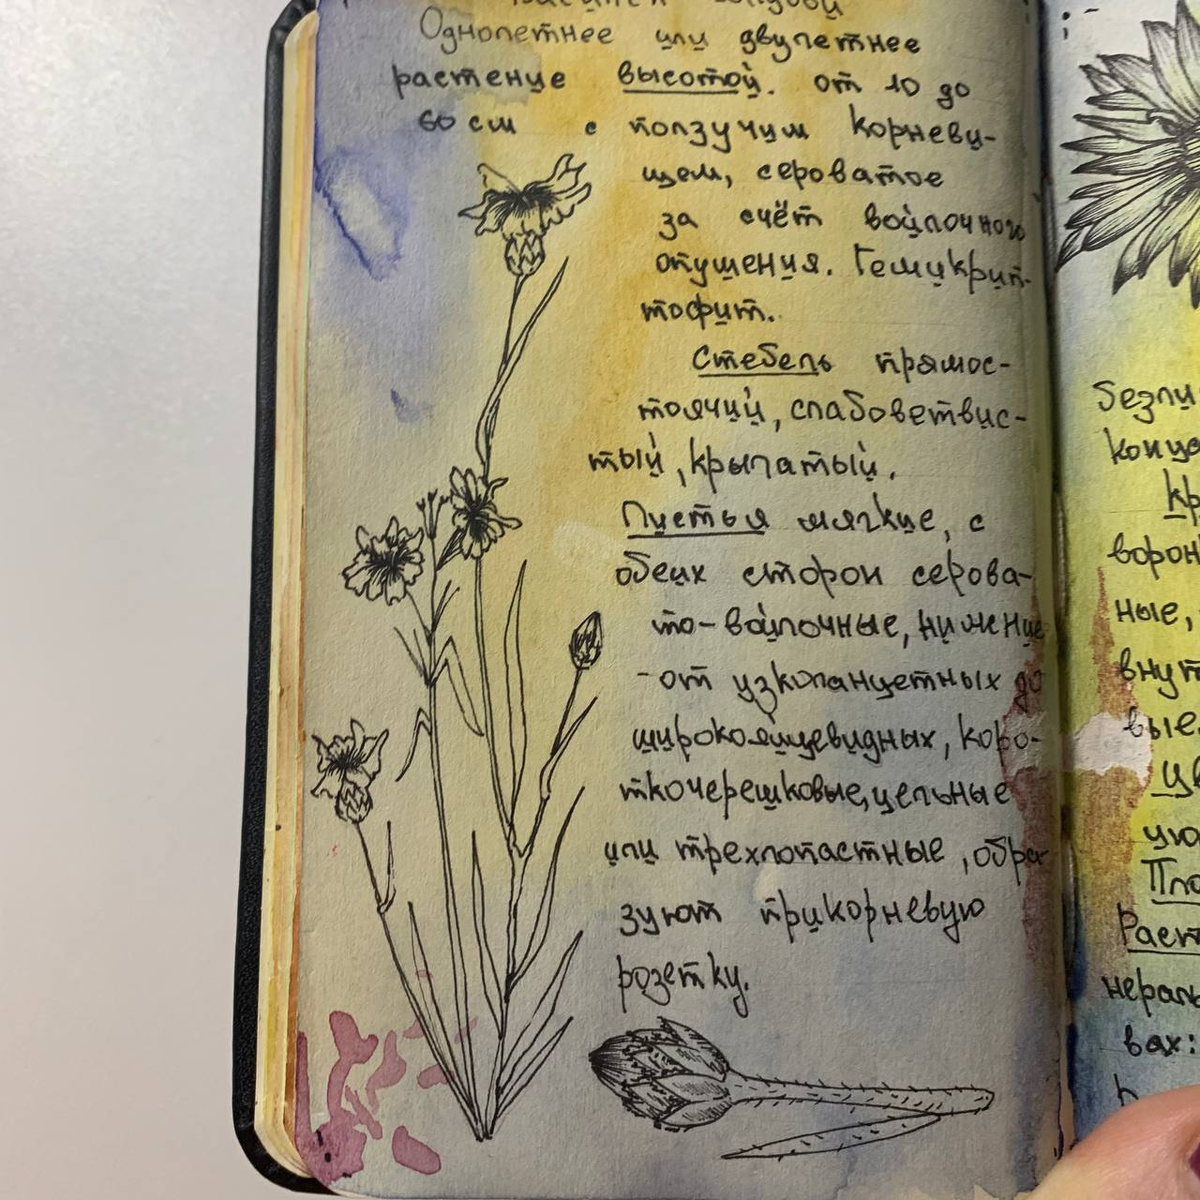 Василёк голубой
Однолетнее или двулетнее
растение высотой. от 10 до
60 см с ползучим корневи-
щем, сероватое
за счёт войлочного
опушения. Гемикрип-
тофит.
Стебель прямос-
тоячий, слабоветвис-
тый, крылатый.
Листья мягкие, с
обеих сторон серова-
то-войлочные, нижние
-от узколанцетных до
широкояйцевидных, коро-
ткочерешковые, цельные
или трехлопастные, обра
зуют прикорневую
розетку.
безли
конце
кр
ворон
ные,
внут
вые.
цв
Пло
Раст
нераль
вах: